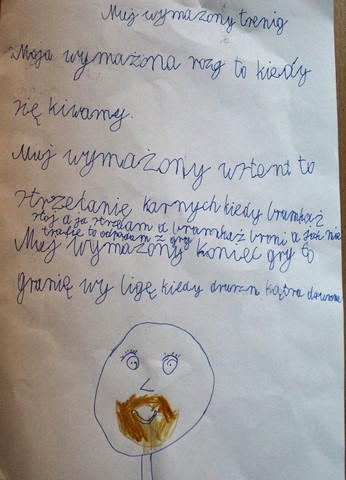 Muj wymażony trenig
Moja wymażona rozg to kiedy
się kiwamy.
Muj wymażony wstent to
strzelanie karnych kiedy bramkaż
stoj a ja strzelam a bramkaż broni a jak nie
trafie to odpadam z gry
Muj wymażony koniec gry to
granię wy ligę kiedy